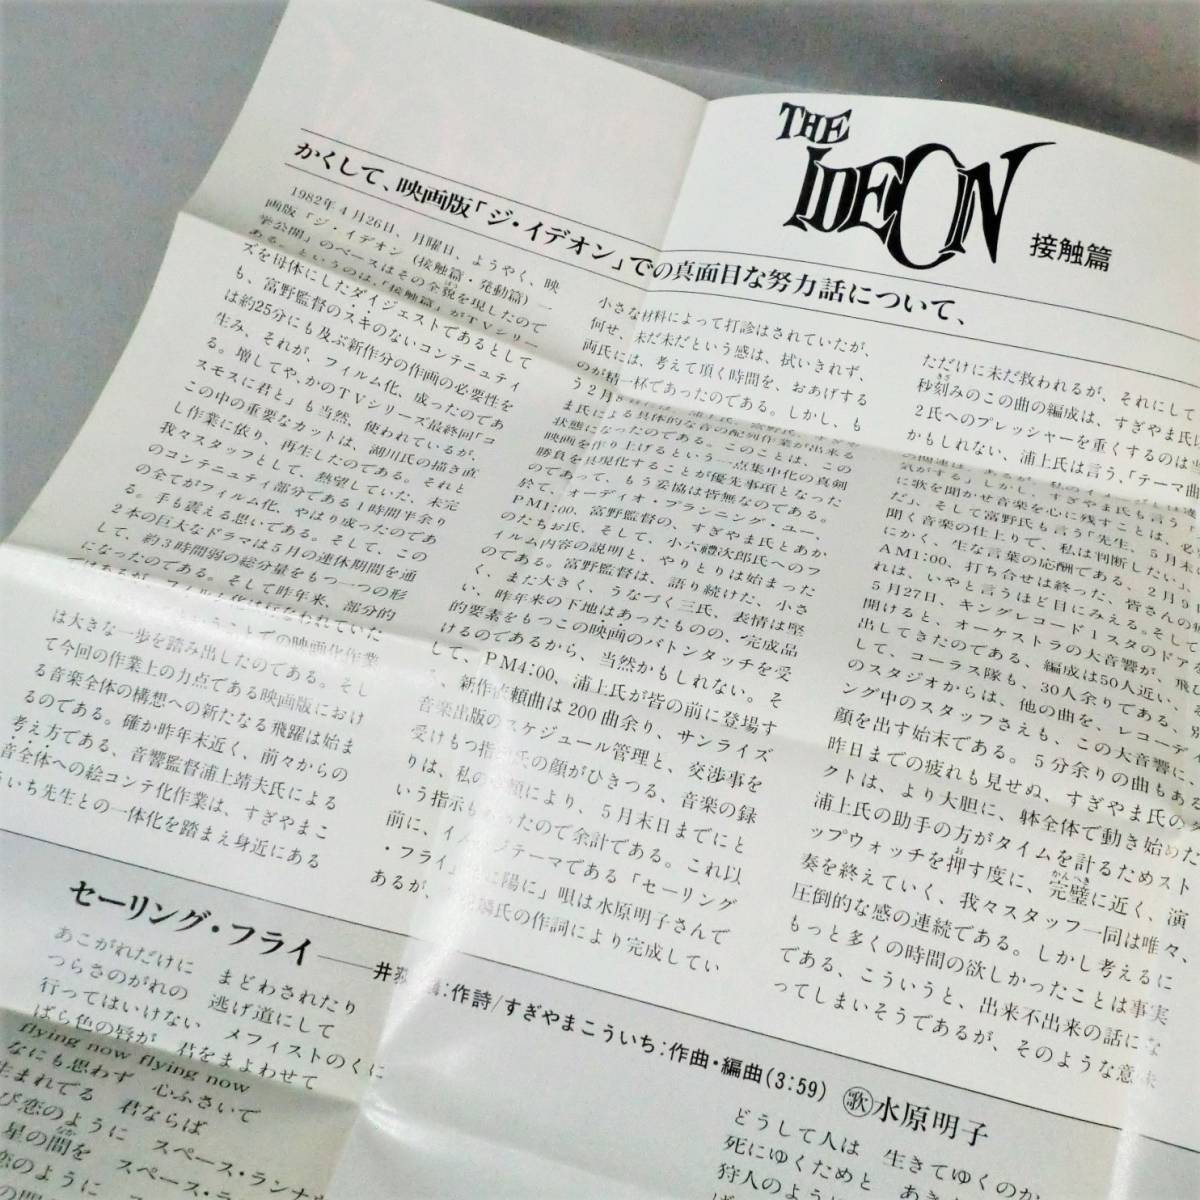 THE
IDEON
接触篇
かくして、映画版「ジ・イデオン」での真面目な努力話について、
1982年4月26日、月曜日、ようやく、映
画版「ジ・イデオン(接触篇・発動篇)一
挙公開」のベースはその全貌を現したので
ある。というのは、「接触篇」がTVシリー
ズを母体にしたダイジェストであるとして
も、富野監督のスキのないコンテニュティ
は約25分にも及ぶ新作分の作画の必要性を
生み、それが、フィルム化、成ったのであ
る。増してや、かのTVシリーズ最終回「コ
スモスに君と」も当然、使われているが、
この中の重要なカットは、湖川氏の描き直
し作業に依り、再生したのである。それと
我々スタッフとして、熱望していた、未完
のコンテニュティ部分である1時間半余り
の全てがフィルム化、やはり成ったのであ
る。手も震える思いである。そして、この
2本の巨大なドラマは5月の連休期間を通
して、約3時間弱の総分量をもつ一つの形
になったのである。そして昨年来、部分的
での映画化作業
は大きな一歩を踏み出したのである。そし
て今回の作業上の力点である映画版におけ
る音楽全体の構想への新たなる飛躍は始ま
るのである。確か昨年末近く、前々からの
考え方である、音響監督浦上靖夫氏による
音全体への絵コンテ化作業は、すぎやまこ
ういち先生との一体化を踏まえ身近にある
小さな材料によって打診はされていたが、
何せ、未だ未だという感は、拭いきれず、
両氏には、考えて頂く時間を、おあげする
のが精一杯であったのである。しかし、も
う2月8
ま氏による具体的な音の配列作業が出来る
状態になったのである。このことは、この
映画を作り上げるという一点集中化の真剣
勝負を具現化することが優先事項となった
のであって、もう妥協は皆無なのである。
於て、オーディオ・プランニング・ユー、
PM1:00、富野監督の、すぎやま氏とあか
のたちお氏、そして、小六禮次郎氏へのフ
ィルム内容の説明と、やりとりは始まった
のである。富野監督は、語り続けた、小さ
く、また大きく、うなづく三氏、表情は堅
い、昨年来の下地はあったものの、完成品
的要素をもつこの映画のバトンタッチを受
けるのであるから、当然かもしれない。そ
して、PM4:00、浦上氏が皆の前に登場す
、新作依頼曲は200曲余り、サンライズ
音楽出版のスケジュール管理と、交渉事を
受けもつ指 氏の顔がひきつる、音楽の録
りは、私の 頼により、5月末日までにと
いう指示も ったので余計である。これ以
前に、イ ジテーマである「セーリング
・フライ」 に陽に」唄は水原明子さんで
あるが、 麟氏の作詞により完成してい
ただけに未だ救われるが、それにして
秒刻みのこの曲の編成は、すぎやま氏以
2氏へのプレッシャーを重くするのは
かもしれない、浦上氏は言う、「テーマ曲
気がする」しかし、すぎやま氏も言う「
に歌を聞かせ音楽を心に残すことは、必
だ」、そして富野氏も言う「先生、5月末の
聞く音楽の仕上りで、私は判断したいよ
にかく、生な言葉の応酬である、2月9
AM1:00、打ち合せは終った、皆さんの
れは、いやと言うほど目にみえる。そして
5月27日、キングレコード1スタのドアを
開けると、オーケストラの大音響が、飛び
出してきたのである、編成は50人近い、そ
して、コーラス隊も、30人余りである、別
のスタジオからは、他の曲を、レコーディ
ング中のスタッフさえも、この大音響に、
顔を出す始末である。5分余りの曲もある
昨日までの疲れも見せぬ、すぎやま氏のタ
クトは、より大胆に、躰全体で動き始めた
浦上氏の助手の方がタイムを計るためスト
ップウォッチを押す度に、完璧に近く、演
奏を終えていく、我々スタッフ一同は唯々、
圧倒的な感の連続である。しかし考えるに
もっと多くの時間の欲しかったことは事実
である、こういうと、出来不出来の話にな
ってしまいそうであるが、そのような意味
セーリング・フライ――井荻 麟:作詩/すぎやまこういち:作曲・編曲(3:59) 歌 水原明子
あこがれだけに まどわされたり
つらさのがれの 逃げ道にして
行ってはいけない メフィストのくに
ばら色の唇が 君をまよわせて
flying now flying now
なにも思わず 心ふさいで
生まれてる 君ならば
び恋のように スペース・ランナウ
星の間を スペース・ラ
恋のように
どうして人は 生きてゆくのか
死にゆくためと あき
狩人のように